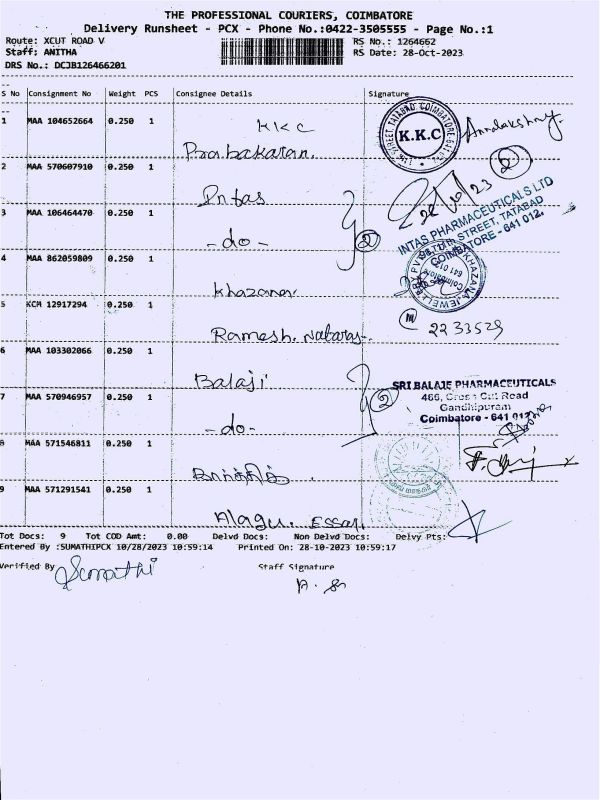 THE PROFESSIONAL COURIERS, COIMBATORE
Delivery Runsheet - PCX - Phone No.:0422-3505555 - Page No.:1
Route: XCUT ROAD V RS No.: 1264662
Staff: ANITHA RS Date: 28-Oct-2023
DRS No.: DCJB126466201
S No Consignment No Weight PCS Consignee Details Signature
1 MAA 104652664 0.250 1 KKC
Prabakaran.
K.K.C
2 MAA 570607910 0.250 1 Intas
2
28/10/23
3 MAA 106464470 0.250 1 -do-
2
INTAS PHARMACEUTICALS LTD
STREET, TATABAD
COIMBATORE - 641 012.
4 MAA 862059809 0.250 1 Khazana
5 KCM 12917294 0.250 1 Ramesh. Nataraj.
2233529
6 MAA 103302066 0.250 1 Balaji
7 MAA 570946957 0.250 1 -do-
2
SRI BALAJE PHARMACEUTICALS
466, Cross Cut Road
Gandhipuram
Coimbatore - 641 012.
8 MAA 571546811 0.250 1
9 MAA 571291541 0.250 1 Alagu. Essar.
Tot Docs: 9 Tot COD Amt: 0.00 Delvd Docs: Non Delvd Docs: Delvy Pts:
Entered By :SUMATHIPCX 10/28/2023 10:59:14 Printed On: 28-10-2023 10:59:17
Verified By Sumathi Staff Signature